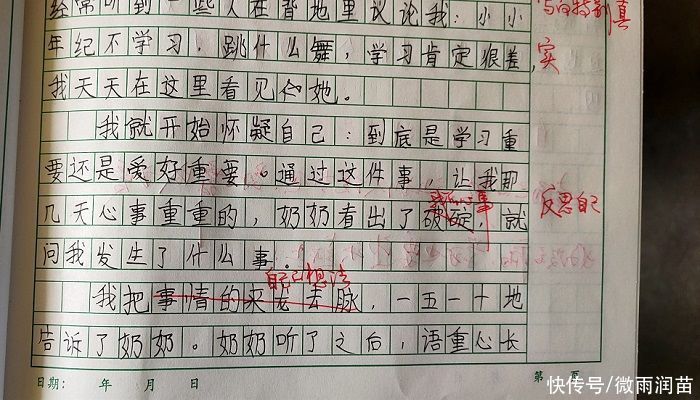 经常听到一些人在背地里议论我：小小
写的特别真
年纪不学习，跳什么舞，学习肯定很差，
实
我天天在这里看见她。
我就开始怀疑自己：到底是学习重
要还是爱好重要。通过这件事，让我那
几天心事重重的，奶奶看出了破碇，就
反思自己
问我发生了什么事。
自己想法
我把事情的来龙去脉，一五一十地
告诉了奶奶。奶奶听了之后，语重心长
日期： 年 月 日
第 页
快传号/微雨润苗